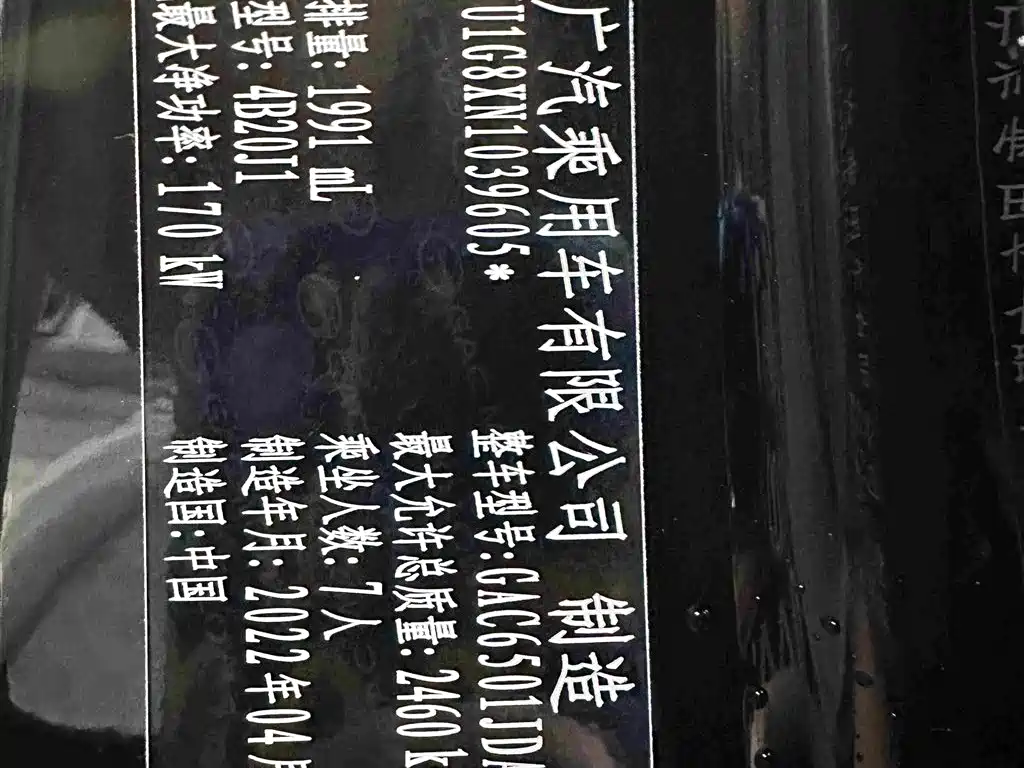 广汽乘用车有限公司 制造
U1G8XN1039605* 整车型号:GAC6501JDA
最大允许总质量:2460 k
排量:1991 mL 乘坐人数:7人
型号:4B20J1 制造年月:2022年04月
最大净功率:170 kW 制造国:中国